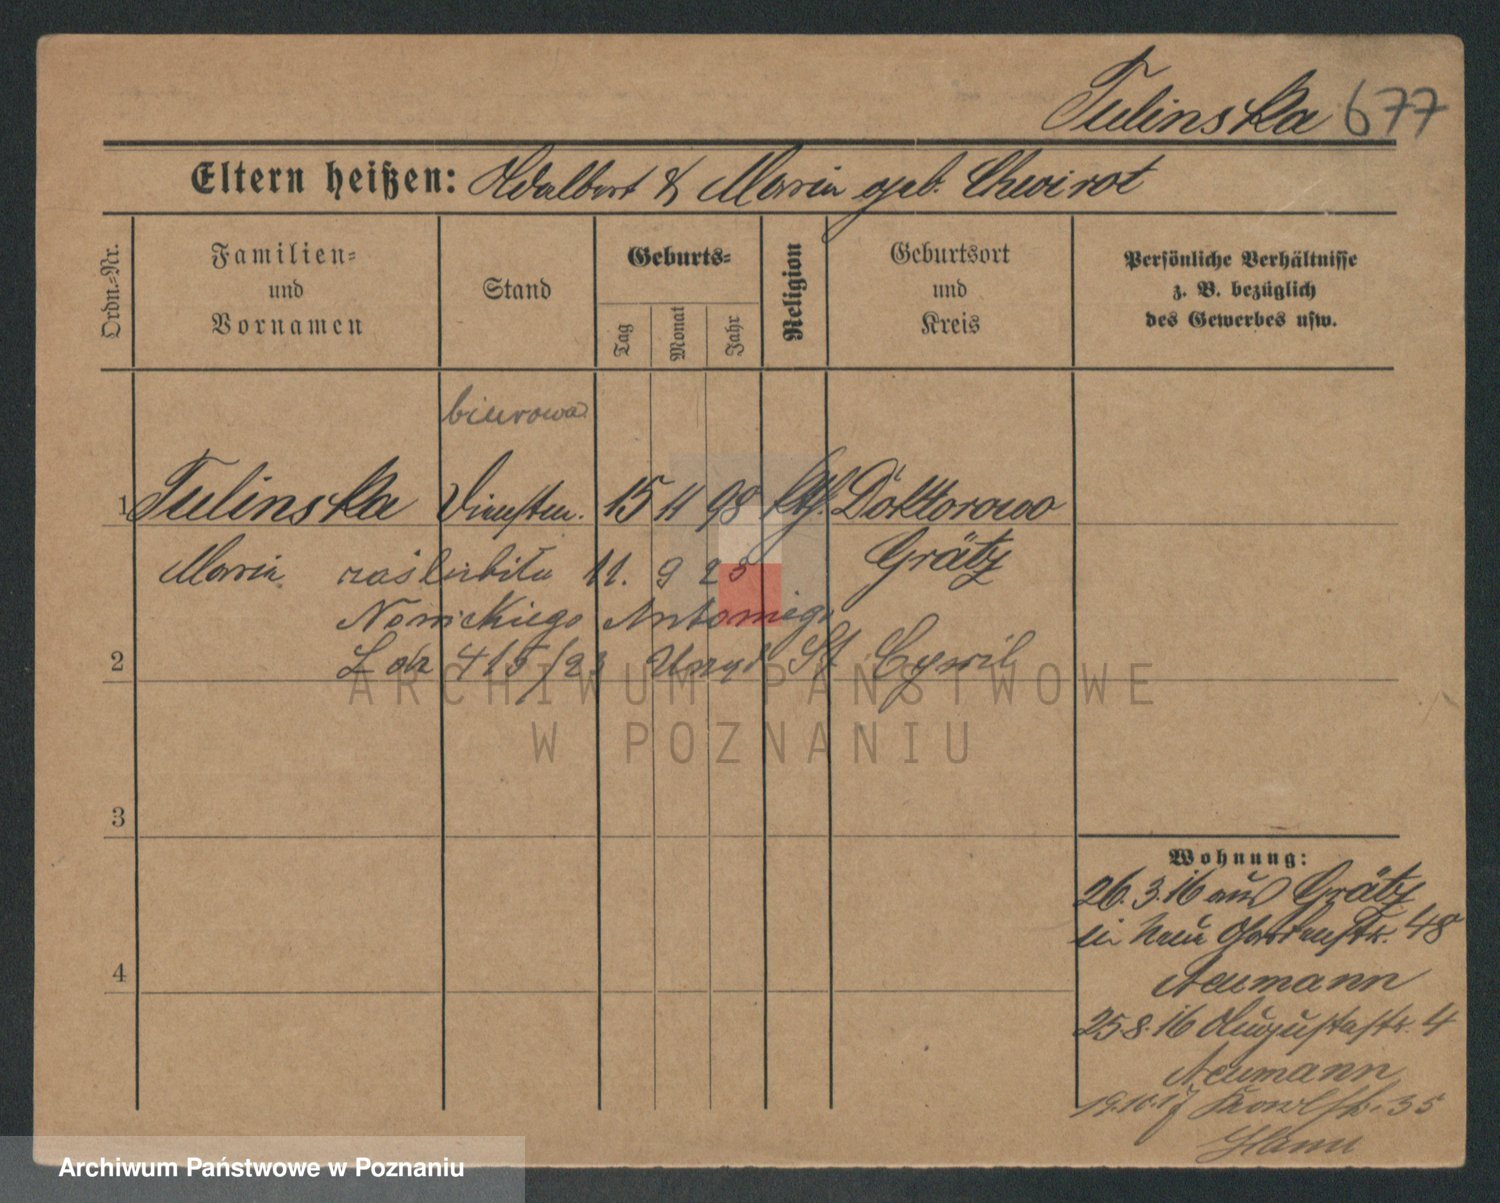 Tulinska 677
Eltern heißen: Adalbert & Maria geb. Chwirot
Ordn.-Nr.
Familien- und Vornamen
Stand
Geburts-
Tag
Monat
Jahr
Religion
Geburtsort und Kreis
Persönliche Verhältnisse z. B. bezüglich des Gewerbes usw.
biurowa
1 Tulinska Dienstm. 15 11 98 kth. Doktorowo
Maria zaślubiła 11. 9 23 Grätz
Nowickiego Antoniego
2 L dz 415/23 Urzęd St Cywil
ARCHIWUM PAŃSTWOWE
W POZNANIU
3
4
Wohnung:
26.3.16 aus Grätz
in Neue Gartenstr. 48
Neumann
25.8.16 Augustastr. 4
Neumann
19.10.17 35
Archiwum Państwowe w Poznaniu